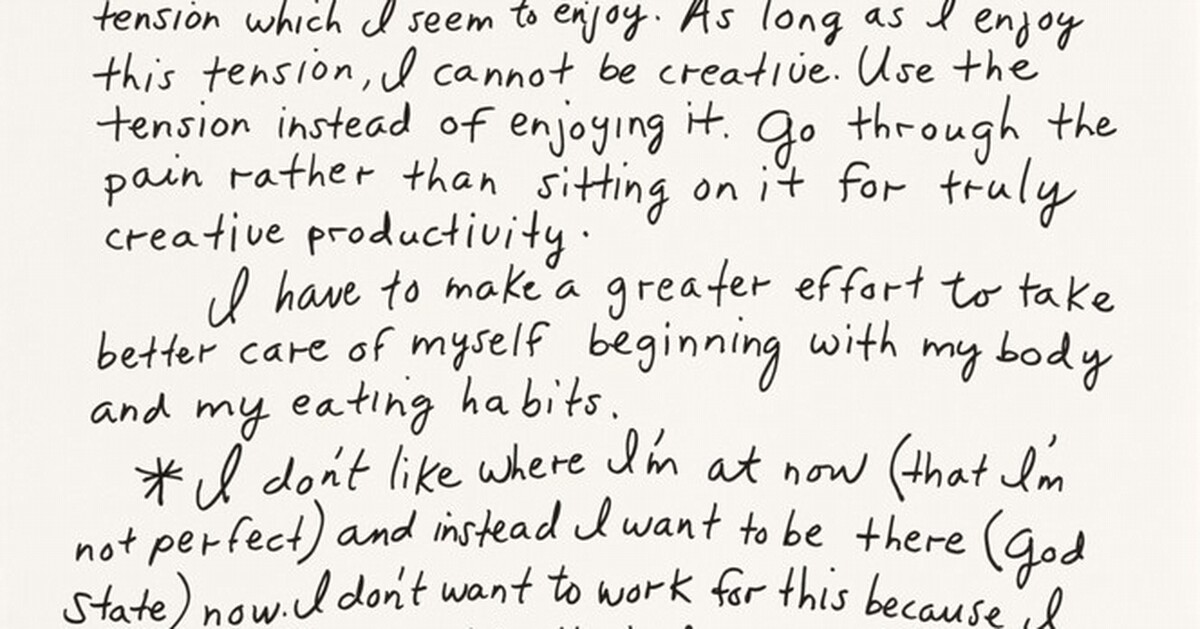 tension which I seem to enjoy. As long as I enjoy
this tension, I cannot be creative. Use the
tension instead of enjoying it. Go through the
pain rather than sitting on it for truly
creative productivity.
I have to make a greater effort to take
better care of myself beginning with my body
and my eating habits.
* I don't like where I'm at now (that I'm
not perfect) and instead I want to be there (God
State) now. I don't want to work for this because I